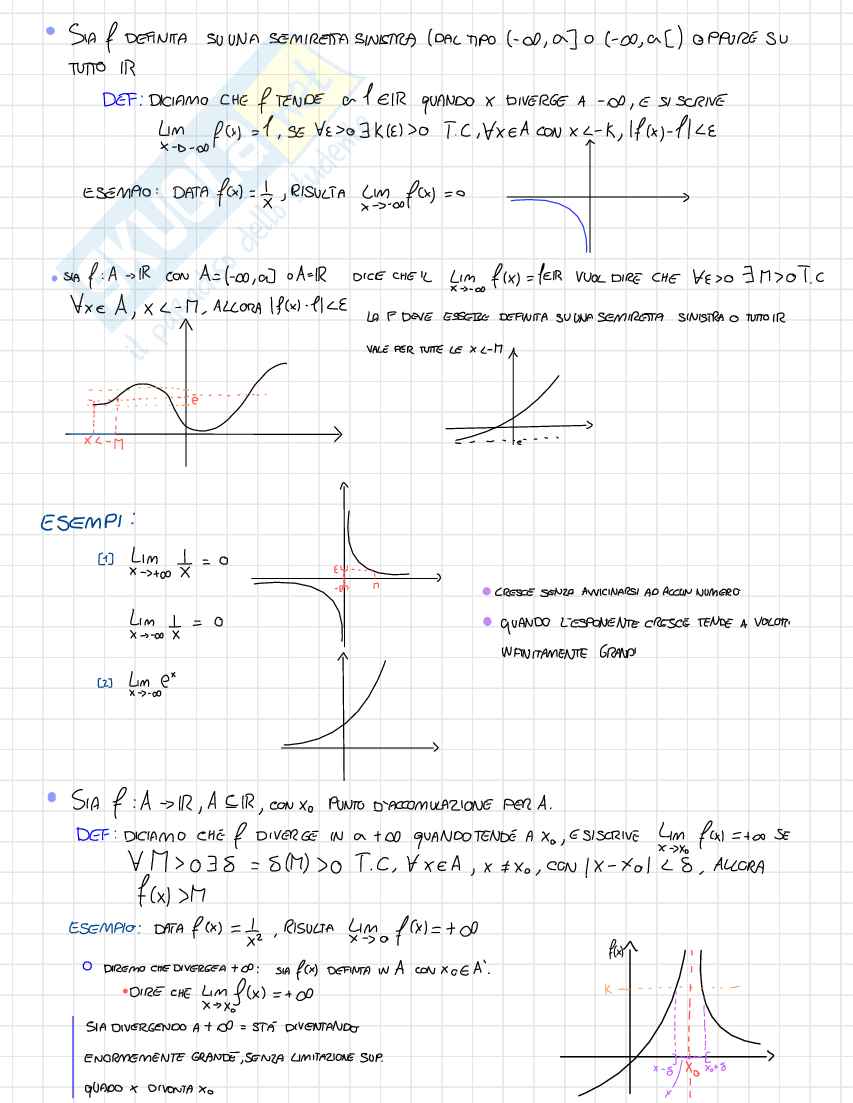 • SIA f DEFINITA SU UNA SEMIRETTA SINISTRA (DAL TIPO (-∞, a] O (-∞, a[) OPPURE SU
TUTTO ℝ
DEF: DICIAMO CHE f TENDE a l∈ℝ QUANDO X DIVERGE A -∞, E SI SCRIVE
Lim x→-∞ f(x) = l, SE ∀ε>0 ∃K(ε)>0 T.C, ∀x∈A CON x<-K, |f(x)-l|<ε
ESEMPIO: DATA f(x) = 1/x, RISULTA Lim x→-∞ f(x) = 0
SKUOLA.net
il paradiso dello studente
• SIA f: A→ℝ CON A=(-∞,a] O A=ℝ DICE CHE IL Lim x→-∞ f(x) = l∈ℝ VUOL DIRE CHE ∀ε>0 ∃M>0 T.C
∀x∈A, x<-M, ALLORA |f(x)-l|<ε
LA F DEVE ESSERE DEFINITA SU UNA SEMIRETTA SINISTRA O TUTTO ℝ
VALE PER TUTTE LE X<-M
x<-M
ESEMPI:
[1] Lim x→+∞ 1/x = 0
Lim x→-∞ 1/x = 0
n
[2] Lim x→-∞ eˣ
• CRESCE SENZA AVVICINARSI AD ALCUN NUMERO
• QUANDO L'ESPONENTE CRESCE TENDE A VALORI
INFINITAMENTE GRANDI
• SIA f: A→ℝ, A⊆ℝ, CON x₀ PUNTO D'ACCOMULAZIONE PER A.
DEF: DICIAMO CHE f DIVERGE IN a +∞ QUANDO TENDE A x₀, E SI SCRIVE Lim x→x₀ f(x) = +∞ SE
∀M>0 ∃δ = δ(M)>0 T.C, ∀x∈A, x≠x₀, CON |x-x₀|<δ, ALLORA
f(x)>M
ESEMPIO: DATA f(x) = 1/x², RISULTA Lim x→0 f(x) = +∞
○ DIREMO CHE DIVERGE A +∞: SIA f(x) DEFINITA IN A CON x₀∈A'.
• DIRE CHE Lim x→x₀ f(x) = +∞
SIA DIVERGENDO A +∞ = STA' DIVENTANDO
ENORMEMENTE GRANDE, SENZA LIMITAZIONE SUP.
QUADO X DIVONTA x₀
f(x)
K
x-δ x₀ x₀+δ
x